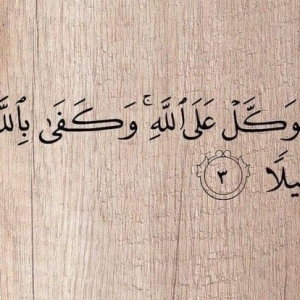 وَكَّلْ عَلَى ٱللَّهِ ۚ وَكَفَىٰ بِٱللَّ
يلًا ٣